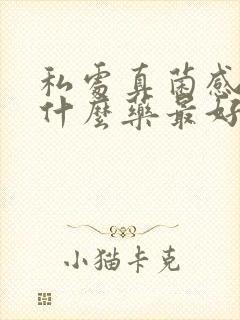 私處真菌感
什麼藥最好
小猫卡克